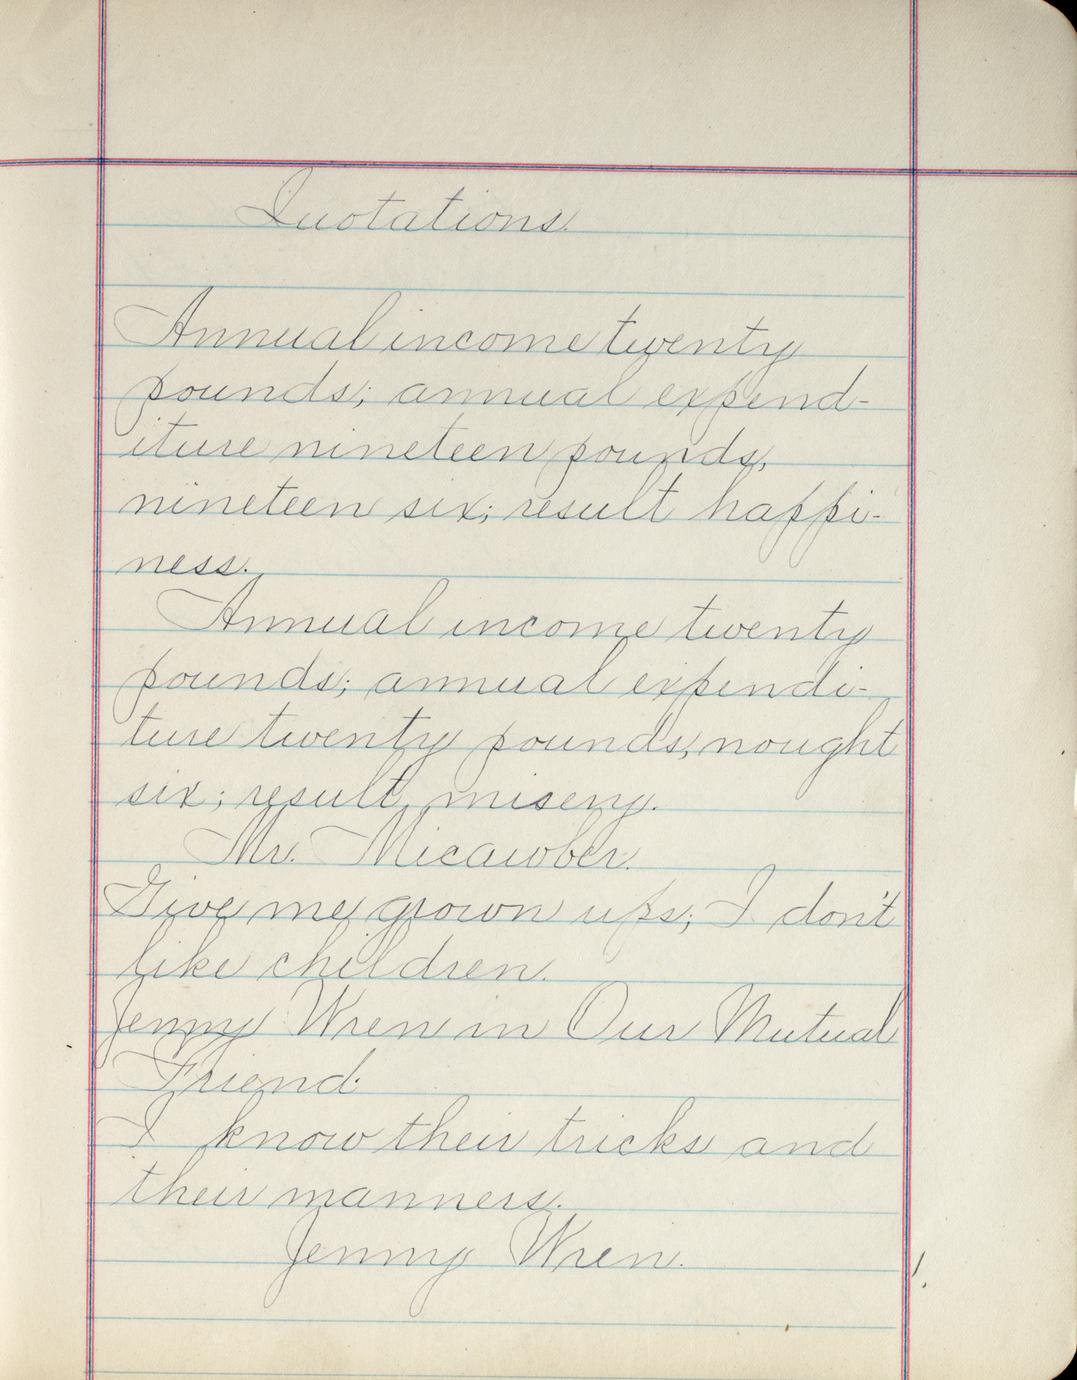 Quotations.
Annual income twenty
pounds; annual expend-
iture nineteen pounds,
nineteen six; result happi-
ness.
Annual income twenty
pounds; annual expendi-
ture twenty pounds, nought
six; result, misery.
Mr. Micawber.
Give me grown ups; I don't
like children.
Jenny Wren in Our Mutual
Friend.
I know their tricks and
their manners.
Jenny Wren.